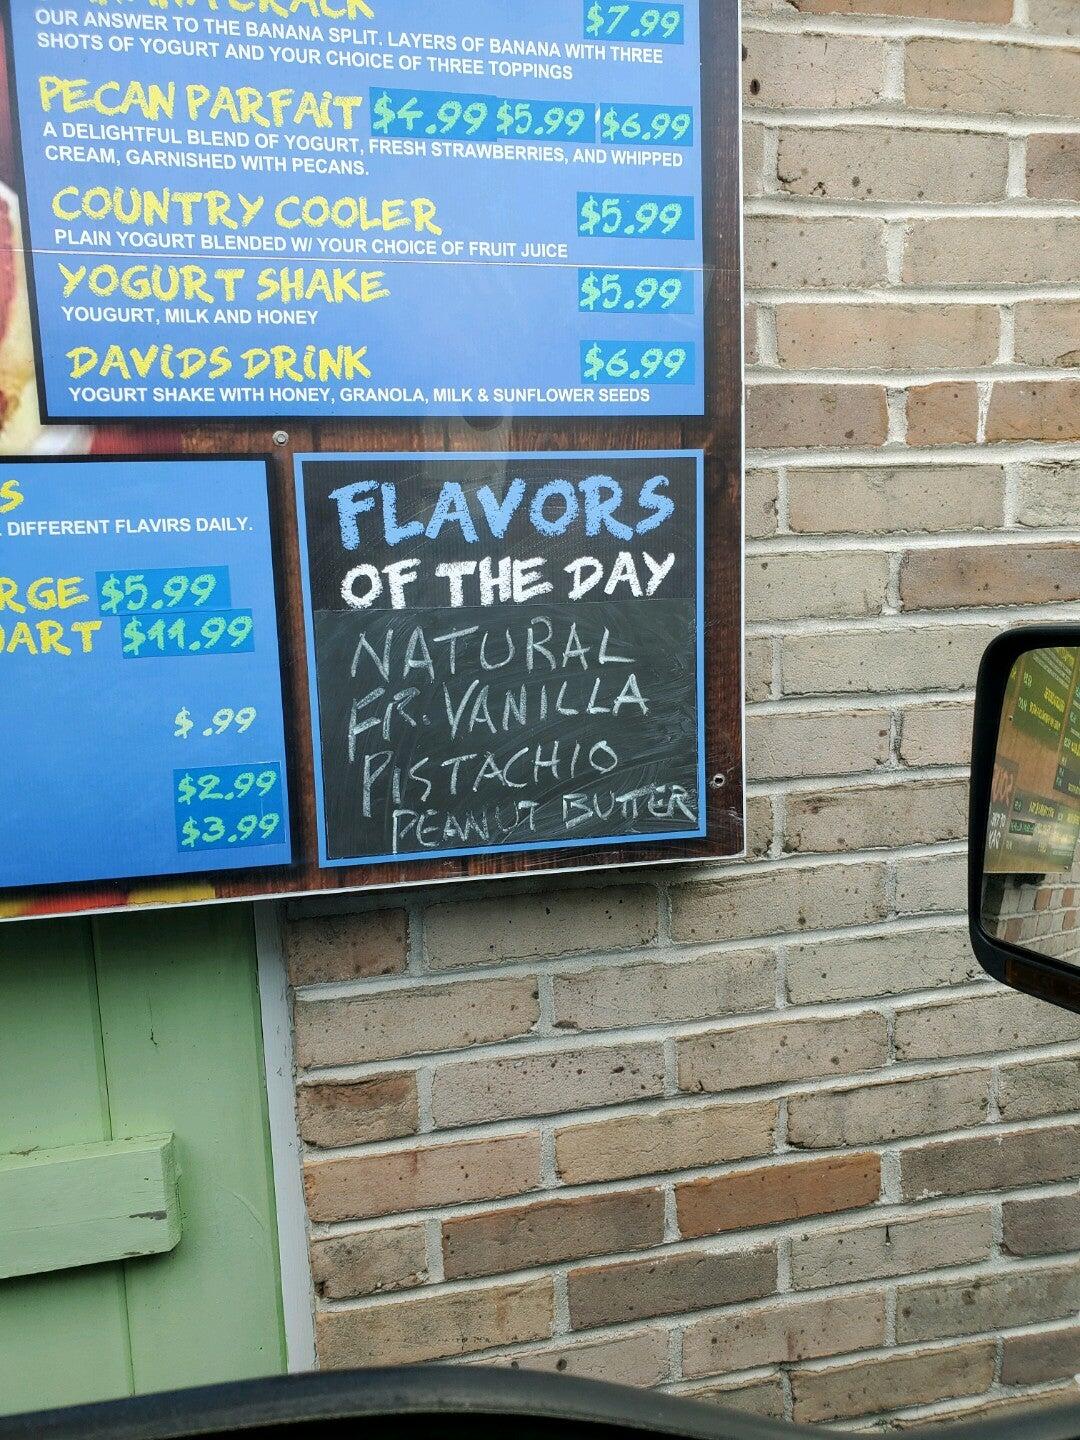 CRACK
$7.99
OUR ANSWER TO THE BANANA SPLIT. LAYERS OF BANANA WITH THREE
SHOTS OF YOGURT AND YOUR CHOICE OF THREE TOPPINGS
PECAN PARFAIT $4.99 $5.99 $6.99
A DELIGHTFUL BLEND OF YOGURT, FRESH STRAWBERRIES, AND WHIPPED
CREAM, GARNISHED WITH PECANS.
COUNTRY COOLER $5.99
PLAIN YOGURT BLENDED W/ YOUR CHOICE OF FRUIT JUICE
YOGURT SHAKE $5.99
YOUGURT, MILK AND HONEY
DAVIDS DRINK $6.99
YOGURT SHAKE WITH HONEY, GRANOLA, MILK & SUNFLOWER SEEDS
S
DIFFERENT FLAVIRS DAILY.
RGE $5.99
ART $11.99
$ .99
$2.99
$3.99
FLAVORS
OF THE DAY
NATURAL
FR. VANILLA
PISTACHIO
PEANUT BUTTER